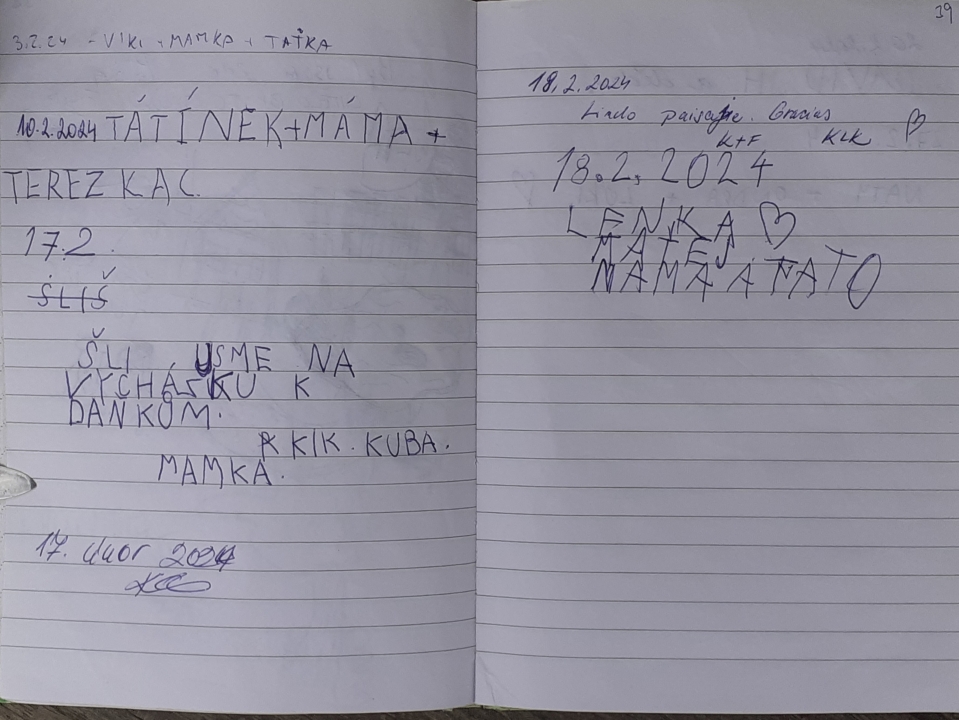 3.2.24 - VIKI + MAMKA + TAŤKA
10.2.2024 TÁTÍNEK+MÁMA +
TEREZKAC.
17.2.
ŠLI JSME NA
VYCHÁSKU K
DAŇKŮM.
KIK. KUBA.
MAMKA.
17. únor 2024
39
18.2.2024
Lindo paisaje. Gracias
K+F KLK ♡
18.2.2024
LENKA ♡
MATEJ
MAMA A TATO